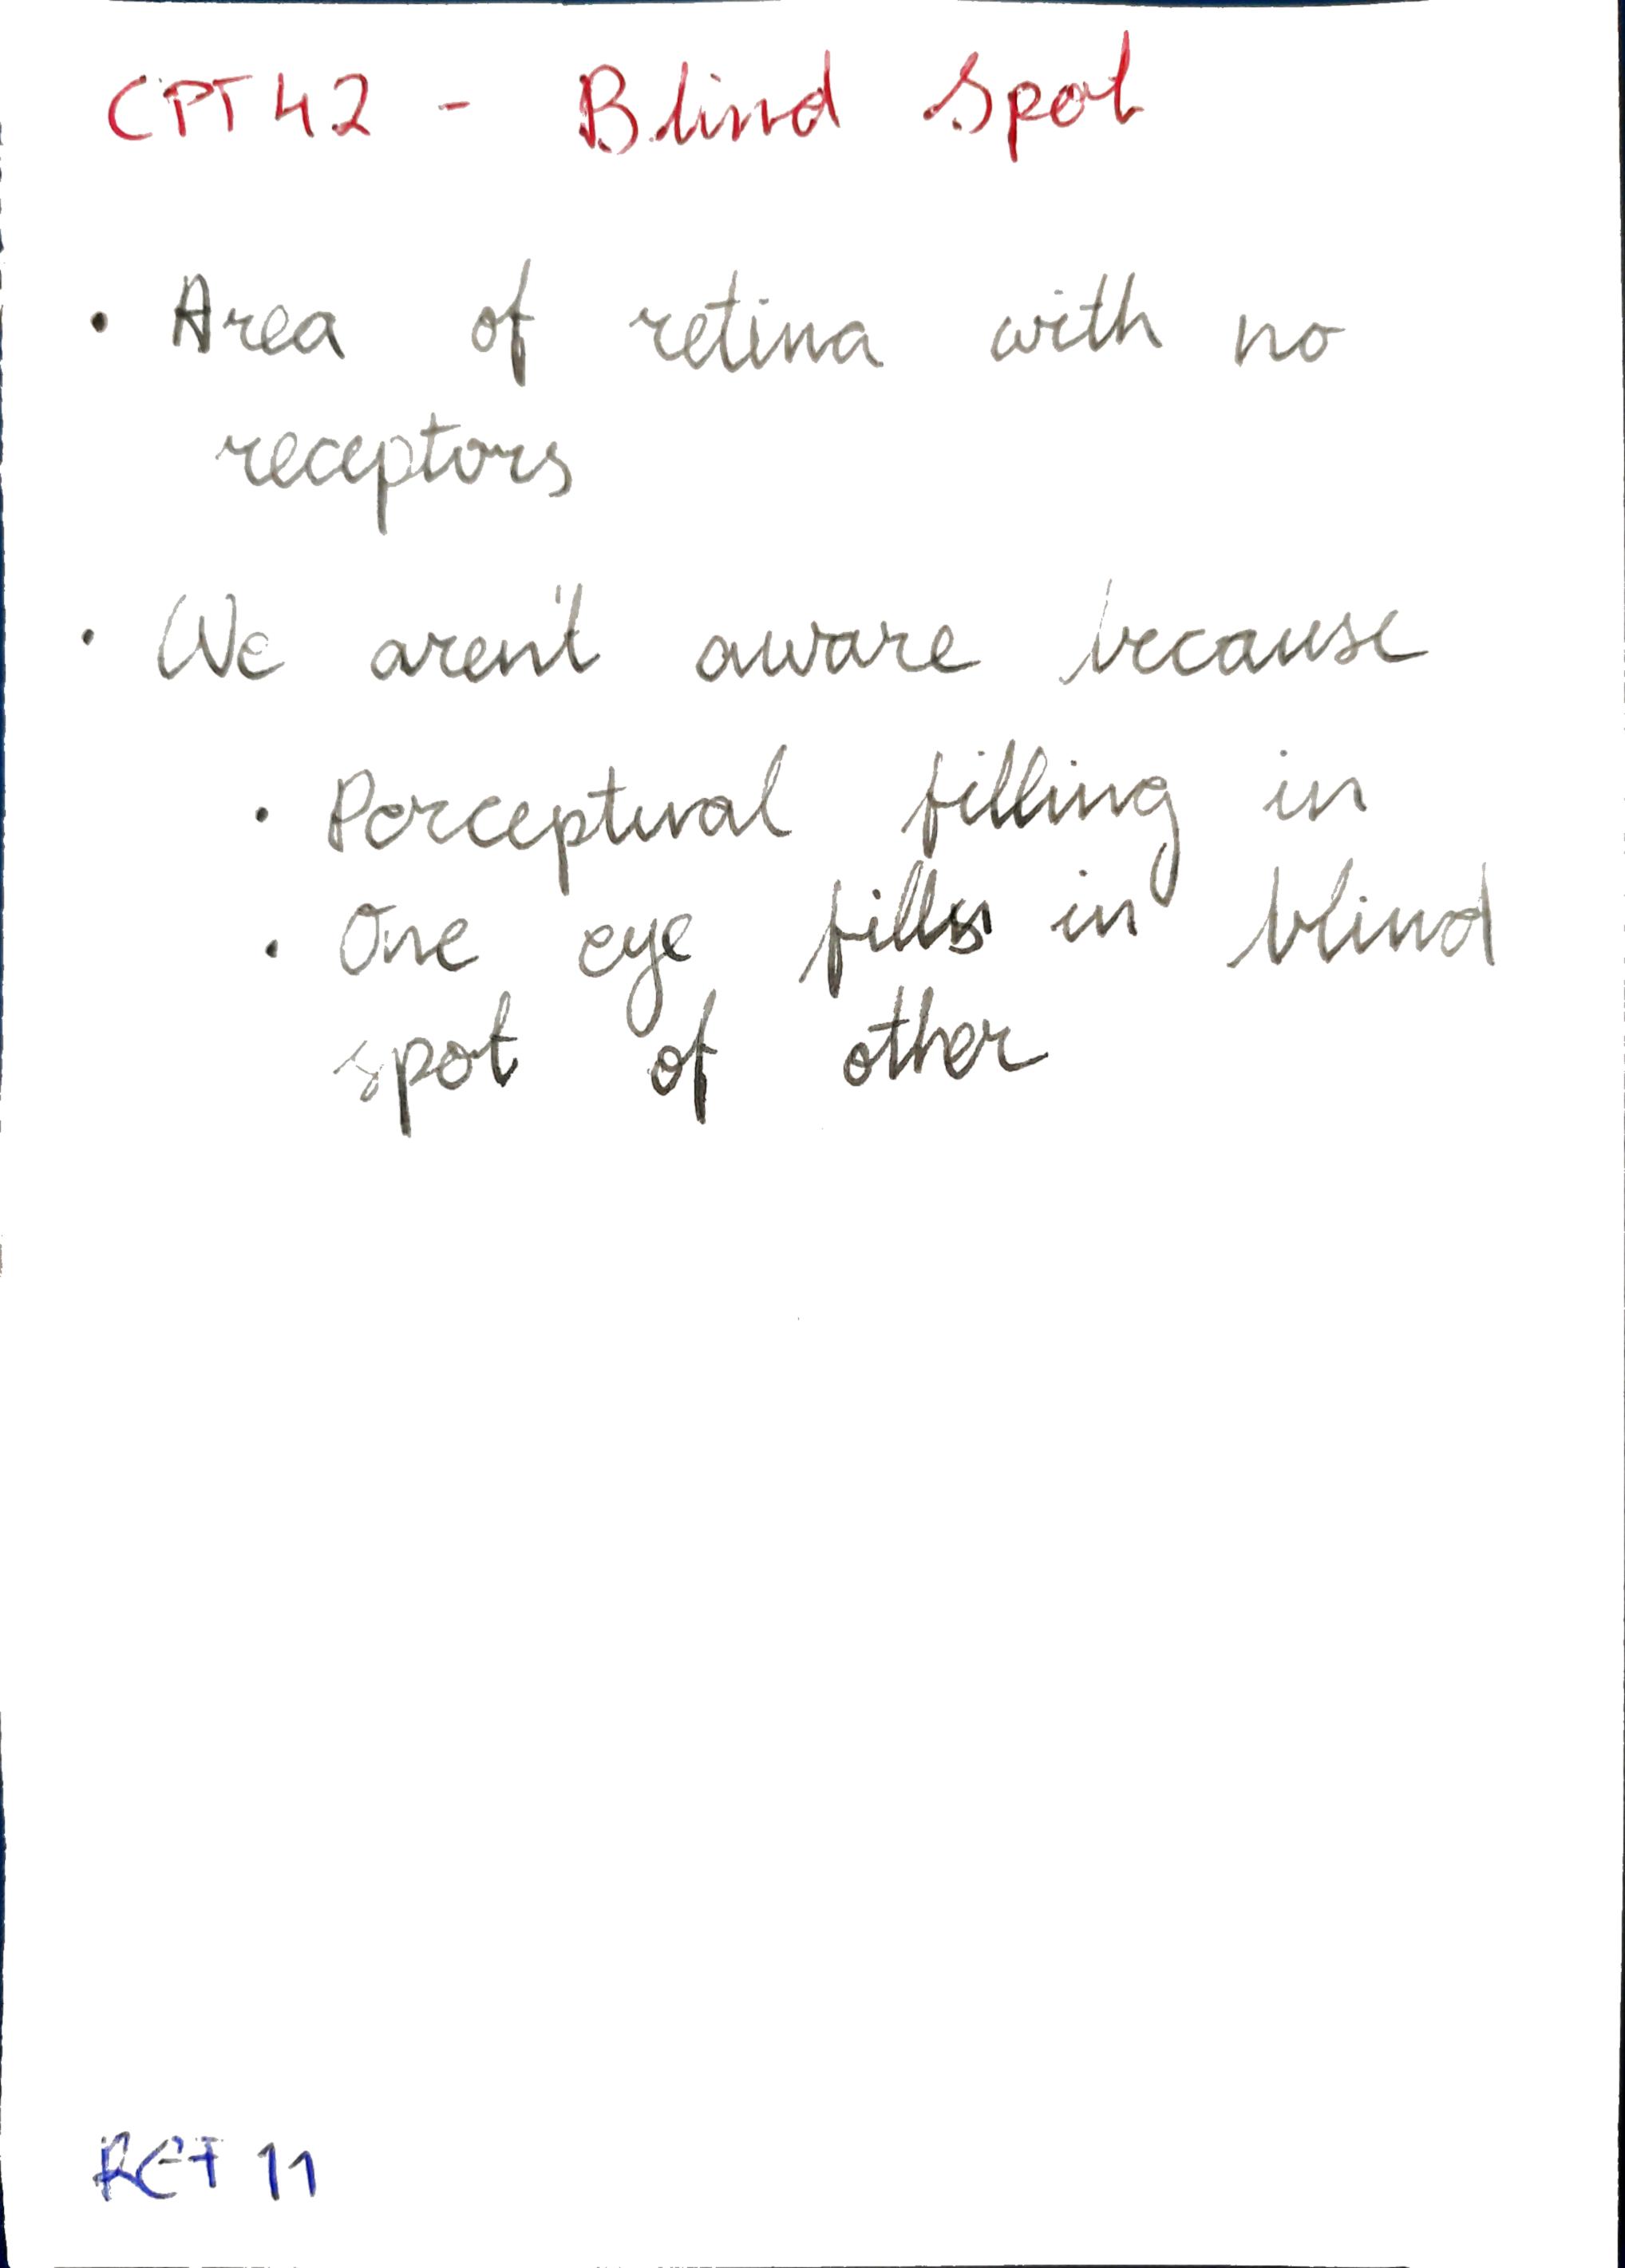 CPT42 - Blind Spot
• Area of retina with no
receptors
• We aren't aware because
• Perceptual filling in
• One eye fills in blind
spot of other
REF 11